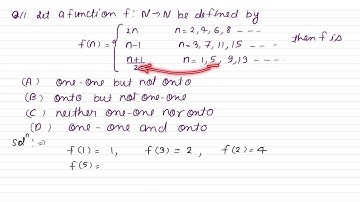 Q11 Let a function f: N→N be defined by
2n n = 2, 4, 6, 8 - - - -
f(n) = n-1 n = 3, 7, 11, 15 - - - - then f is
n+1/2 n = 1, 5, 9, 13 - - - -
(A) one-one but not onto
(B) onto but not one-one
(C) neither one-one nor onto
(D) one-one and onto
Solⁿ :⇒ f(1) = 1, f(3) = 2, f(2) = 4
f(5) =